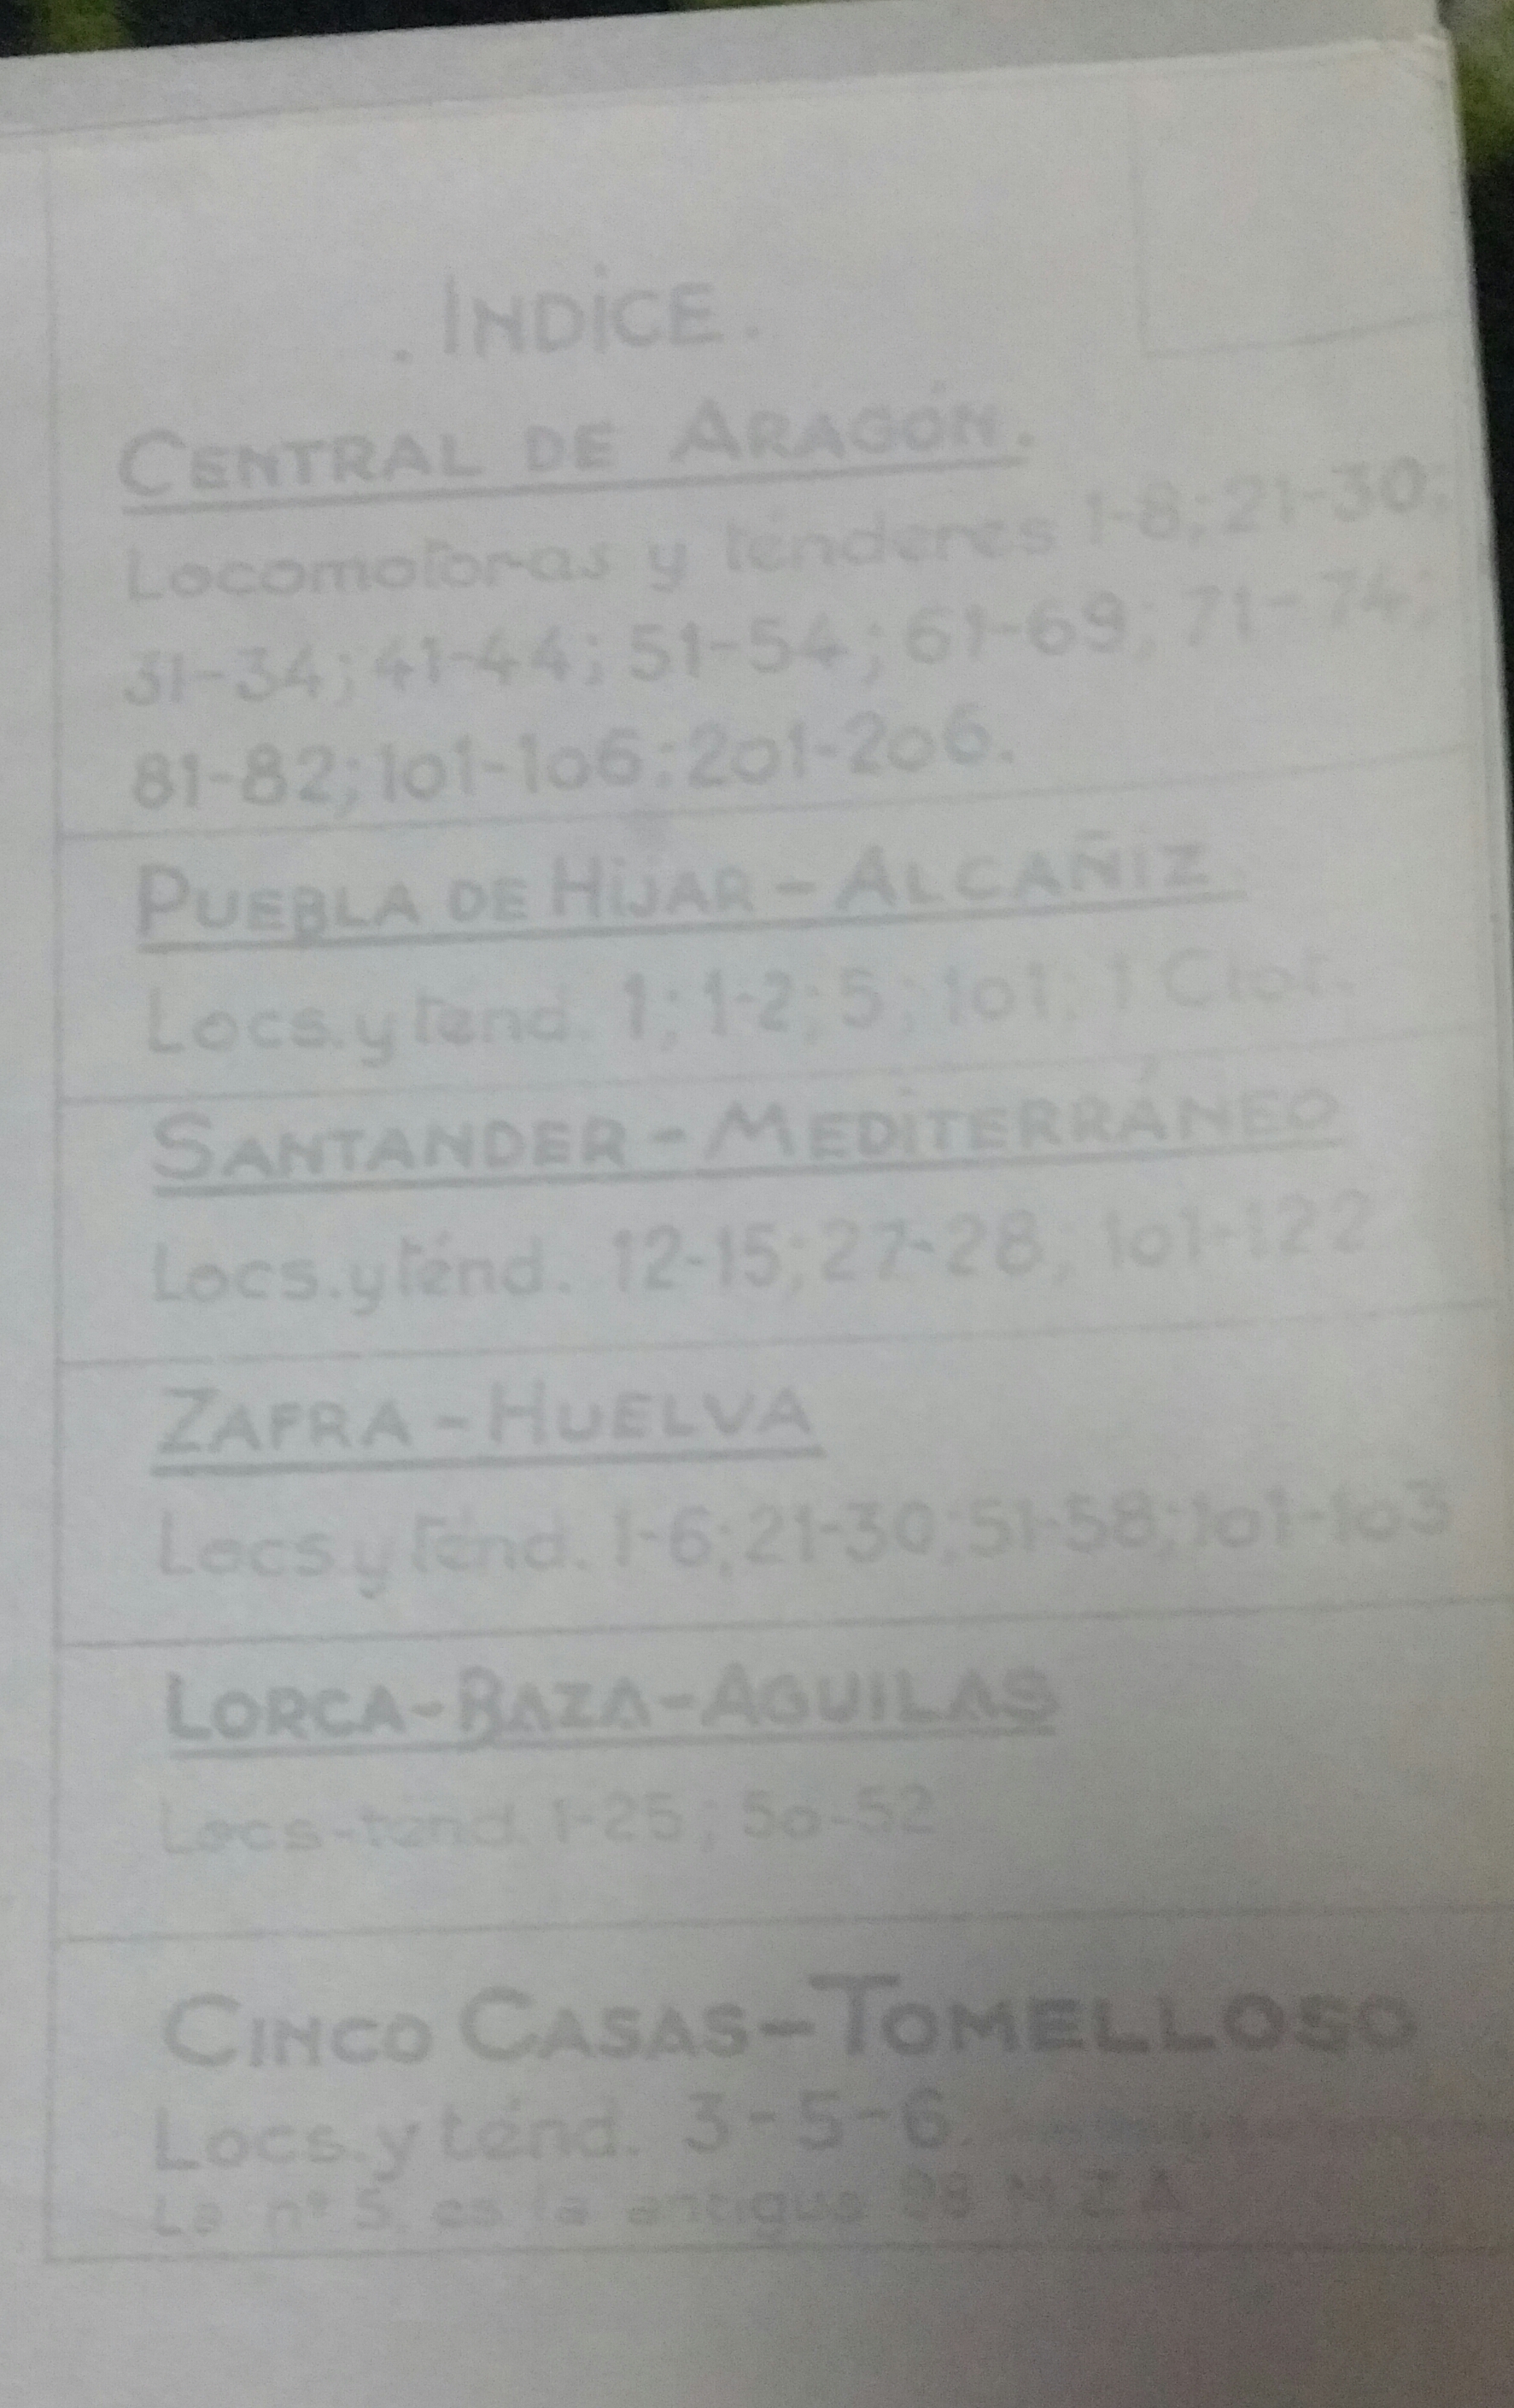 . INDICE .
CENTRAL DE ARAGÓN.
Locomotoras y ténderes 1-8; 21-30;
31-34; 41-44; 51-54; 61-69; 71-74;
81-82; 101-106; 201-206.
PUEBLA DE HIJAR - ALCAÑIZ.
Locs. y ténd. 1; 1-2; 5; 101; 1 Ctot.
SANTANDER - MEDITERRÁNEO
Locs. y ténd. 12-15; 27-28; 101-122
ZAFRA - HUELVA
Locs. y Ténd. 1-6; 21-30; 51-58; 101-103
LORCA-BAZA-AGUILAS
Locs-ténd. 1-25; 50-52
CINCO CASAS-TOMELLOSO
Locs. y ténd. 3-5-6.
La nº 5. es la antigua 98 M Z A